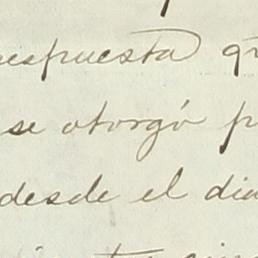 respuesta q
se otorgó p
desde el dia